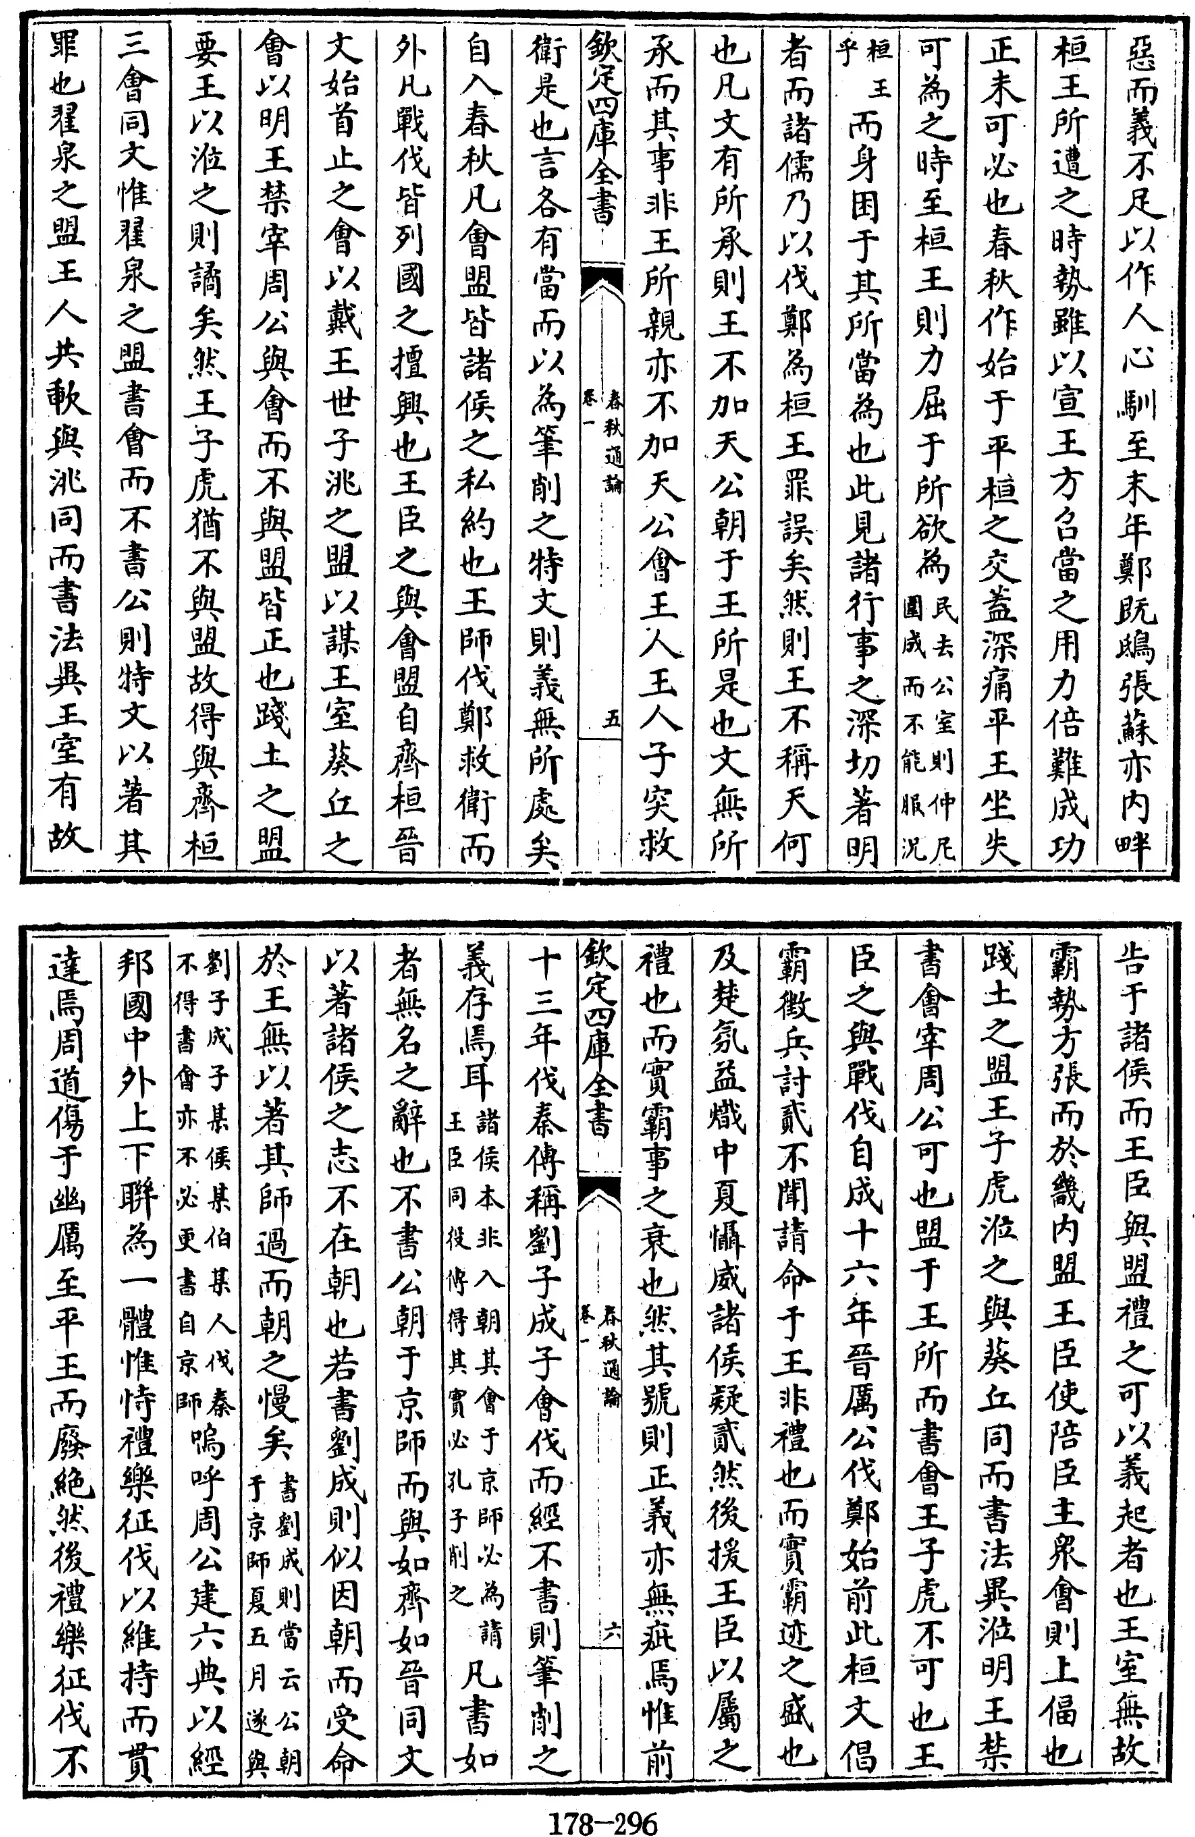 惡而義不足以作人心馴至末年鄭既鴟張蘇亦内畔
桓王所遭之時勢雖以宣王方召當之用力倍難成功
正未可必也春秋作始于平桓之交蓋深痛平王坐失
可為之時至桓王則力屈于所欲為民去公室則仲尼圍成而不能服况
桓王乎而身困于其所當為也此見諸行事之深切著明
者而諸儒乃以伐鄭為桓王罪誤矣然則王不稱天何
也凡文有所承則王不加天公朝于王所是也文無所
承而其事非王所親亦不加天公會王人王人子突救
欽定四庫全書 春秋通論 卷一 五
衛是也言各有當而以為筆削之特文則義無所處矣
自入春秋凡會盟皆諸侯之私約也王師伐鄭救衛而
外凡戰伐皆列國之擅興也王臣之與會盟自齊桓晉
文始首止之會以戴王世子洮之盟以謀王室葵丘之
會以明王禁宰周公與會而不與盟皆正也踐土之盟
要王以涖之則譎矣然王子虎猶不與盟故得與齊桓
三會同文惟翟泉之盟書會而不書公則特文以著其
罪也翟泉之盟王人共歃與洮同而書法異王室有故
告于諸侯而王臣與盟禮之可以義起者也王室無故
霸勢方張而於畿内盟王臣使陪臣主衆會則上偪也
踐土之盟王子虎涖之與葵丘同而書法異涖明王禁
書會宰周公可也盟于王所而書會王子虎不可也王
臣之與戰伐自成十六年晉厲公伐鄭始前此桓文倡
霸徵兵討貳不聞請命于王非禮也而實霸迹之盛也
及楚氛益熾中夏懾威諸侯疑貳然後援王臣以屬之
禮也而實霸事之衰也然其號則正義亦無疵焉惟前
欽定四庫全書 春秋通論 卷一 六
十三年伐秦傳稱劉子成子會伐而經不書則筆削之
義存焉耳諸侯本非入朝其會于京師必為請王臣同役傳得其實必孔子削之凡書如
者無名之辭也不書公朝于京師而與如齊如晉同文
以著諸侯之志不在朝也若書劉成則似因朝而受命
於王無以著其師過而朝之慢矣書劉成則當云公朝于京師夏五月遂與
劉子成子某侯某伯某人伐秦不得書會亦不必更書自京師嗚呼周公建六典以經
邦國中外上下聯為一體惟恃禮樂征伐以維持而貫
達焉周道傷于幽厲至平王而廢絶然後禮樂征伐不
178-296